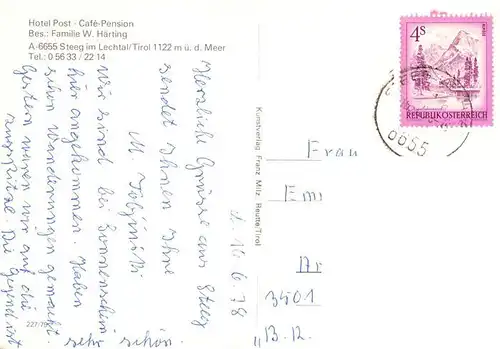 Hotel Post - Café-Pension
Bes.: Familie W. Härting
A-6655 Steeg im Lechtal/Tirol 1122 m ü. d. Meer
Tel.: 0 56 33 / 22 14
d. 16.6.78
Herzliche Grüsse aus Steeg
sendet Ihnen Ihre
M.
Wir sind bei Sonnenschein
hier angekommen. Haben
schon Wanderungen gemacht.
Gestern waren wir auf die
Die Gegend ist
sehr schön.
227/75
Kunstverlag Franz Milz, Reutte/Tirol
4S
REPUBLIK ÖSTERREICH
6655
Frau
3401